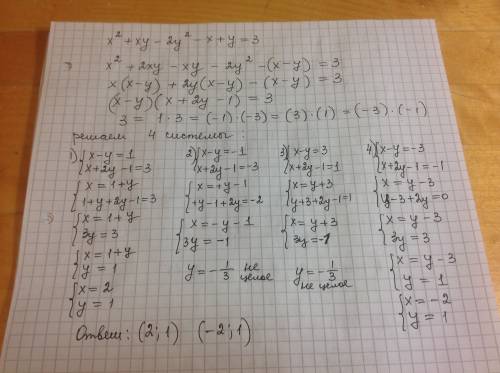 x² + xy − 2y² − x + y = 3
x² + 2xy − xy − 2y² − (x−y) = 3
x(x−y) + 2y(x−y) − (x−y) = 3
(x−y)(x + 2y −1) = 3
3 = 1·3 = (−1)·(−3) = (3)·(1) = (−3)·(−1)
решаем 4 системы:
1) { x−y=1
x+2y−1=3
{ x = 1+y
1+y+2y−1=3
{ x = 1+y
3y = 3
{ x = 1+y
y = 1
{ x = 2
y = 1
2) { x−y=−1
x+2y−1=−3
{ x = +y−1
+y−1+2y=−2
{ x = −y−1
3y = −1
y = −1/3 не
целое
3) { x−y=3
x+2y−1=1
{ x = y+3
y+3+2y−1=1
{ x = y+3
3y=−1
y = −1/3
не целое
4) { x−y=−3
x+2y−1=−1
{ x = y−3
y−3+2y=0
{ x = y−3
3y = 3
{ x = y−3
y = 1
{ x = −2
y = 1
Ответ: (2;1) (−2;1)